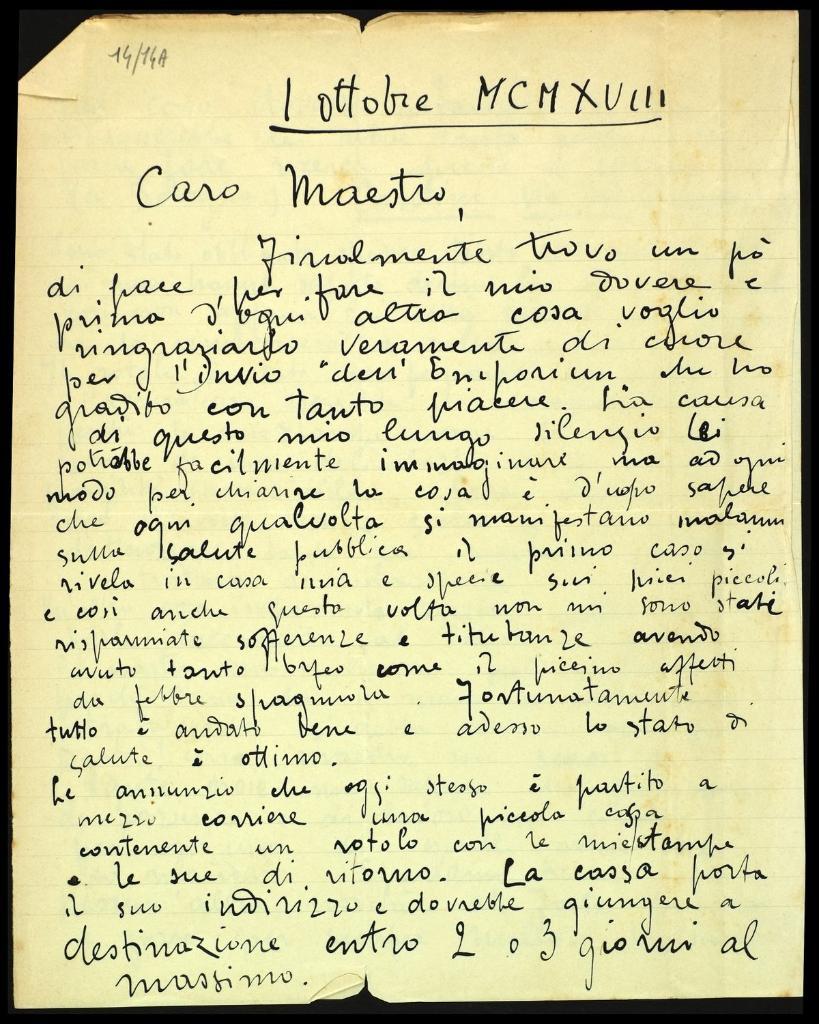 14/14A
1 ottobre MCMXVIII
Caro Maestro,
Finalmente trovo un pò
di pace per fare il mio dovere e
prima d'ogni altra cosa voglio
ringraziarlo veramente di cuore
per l'invio dell'Emporium che ho
gradito con tanto piacere. La causa
di questo mio lungo silenzio Lei
potrebbe facilmente immaginare ma ad ogni
modo per chiarire la cosa è d'uopo sapere
che ogni qualvolta si manifestano malanni
sulla salute pubblica il primo caso si
rivela in casa mia e specie sui miei piccoli
e così anche questa volta non mi sono state
risparmiate sofferenze e titubanze avendo
avuto tanto Orfeo come il piccino affetti
da febbre spagnuola. Fortunatamente
tutto è andato bene e adesso lo stato di
salute è ottimo.
Le annunzio che oggi stesso è partito a
mezzo corriere una piccola cassa
contenente un rotolo con le mie stampe
e le sue di ritorno. La cassa porta
il suo indirizzo e dovrebbe giungere a
destinazione entro 2 o 3 giorni al
massimo.